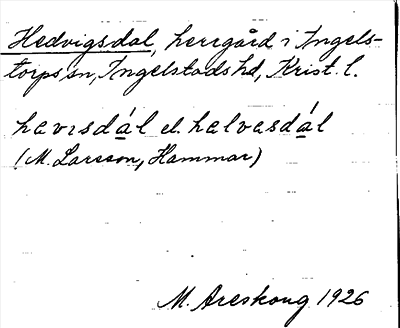 Hedvigsdal, herrgård i Ingels-
torps sn, Ingelstads hd, Krist. l.
havɪsdál el. halvasdál
(M. Larsson, Hammar)
M. Areskoug 1926